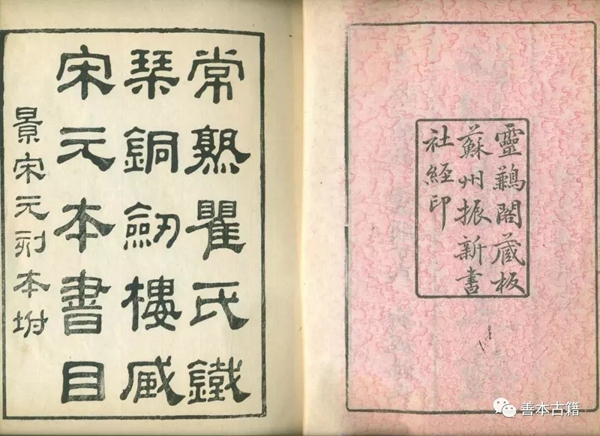 靈鶼閣藏板
蘇州振新書
社經印
常熟瞿氏鐵
琹銅劒樓臧
宋元本書目
景宋元刻本坿
善本古籍